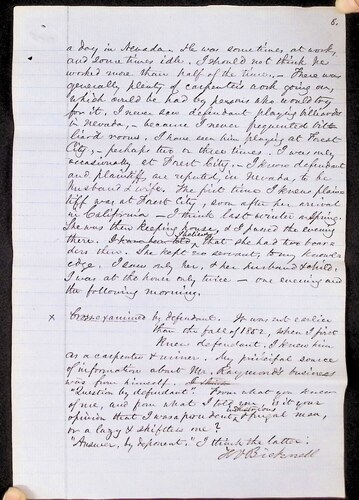 6.
a day in Nevada. He was sometimes at work,
and sometimes idle. I should not think he
worked more than half of the time. There was
generally plenty of carpenter's work going on,
which could be had by persons who would try
for it. I never saw defendant playing billiards
in Nevada, - because I never frequented bil-
liard rooms. I have seen him playing at Forest
City, - perhaps two or three times. I was only
occasionally at Forest City. - I know defendant
and plaintiff are reputed, in Nevada, to be
husband & wife. The first time I knew plain-
tiff was at Forest City, soon after her arrival
in California - I think last winter or spring.
She was then keeping house, & I passed the evening
there. I know that she had two boar-
ders there. She kept no servant, to my knowl-
edge. I saw only her, & her husband & child.
I was at the house only twice - one evening and
the following morning.
x Cross-examined by defendant. It was not earlier
than the fall of 1852, when I first
knew defendant. I knew him
as a carpenter & miner. My principal source
of information about Mr. Raymond's business
was from himself.
"Question by defendant." From what you knew
of me, and from what I told you, is it your
opinion that I was a prudent, industrious & frugal man,
or a lazy & shiftless one?
"Answer, by deponent." I think the latter.
Bicknell